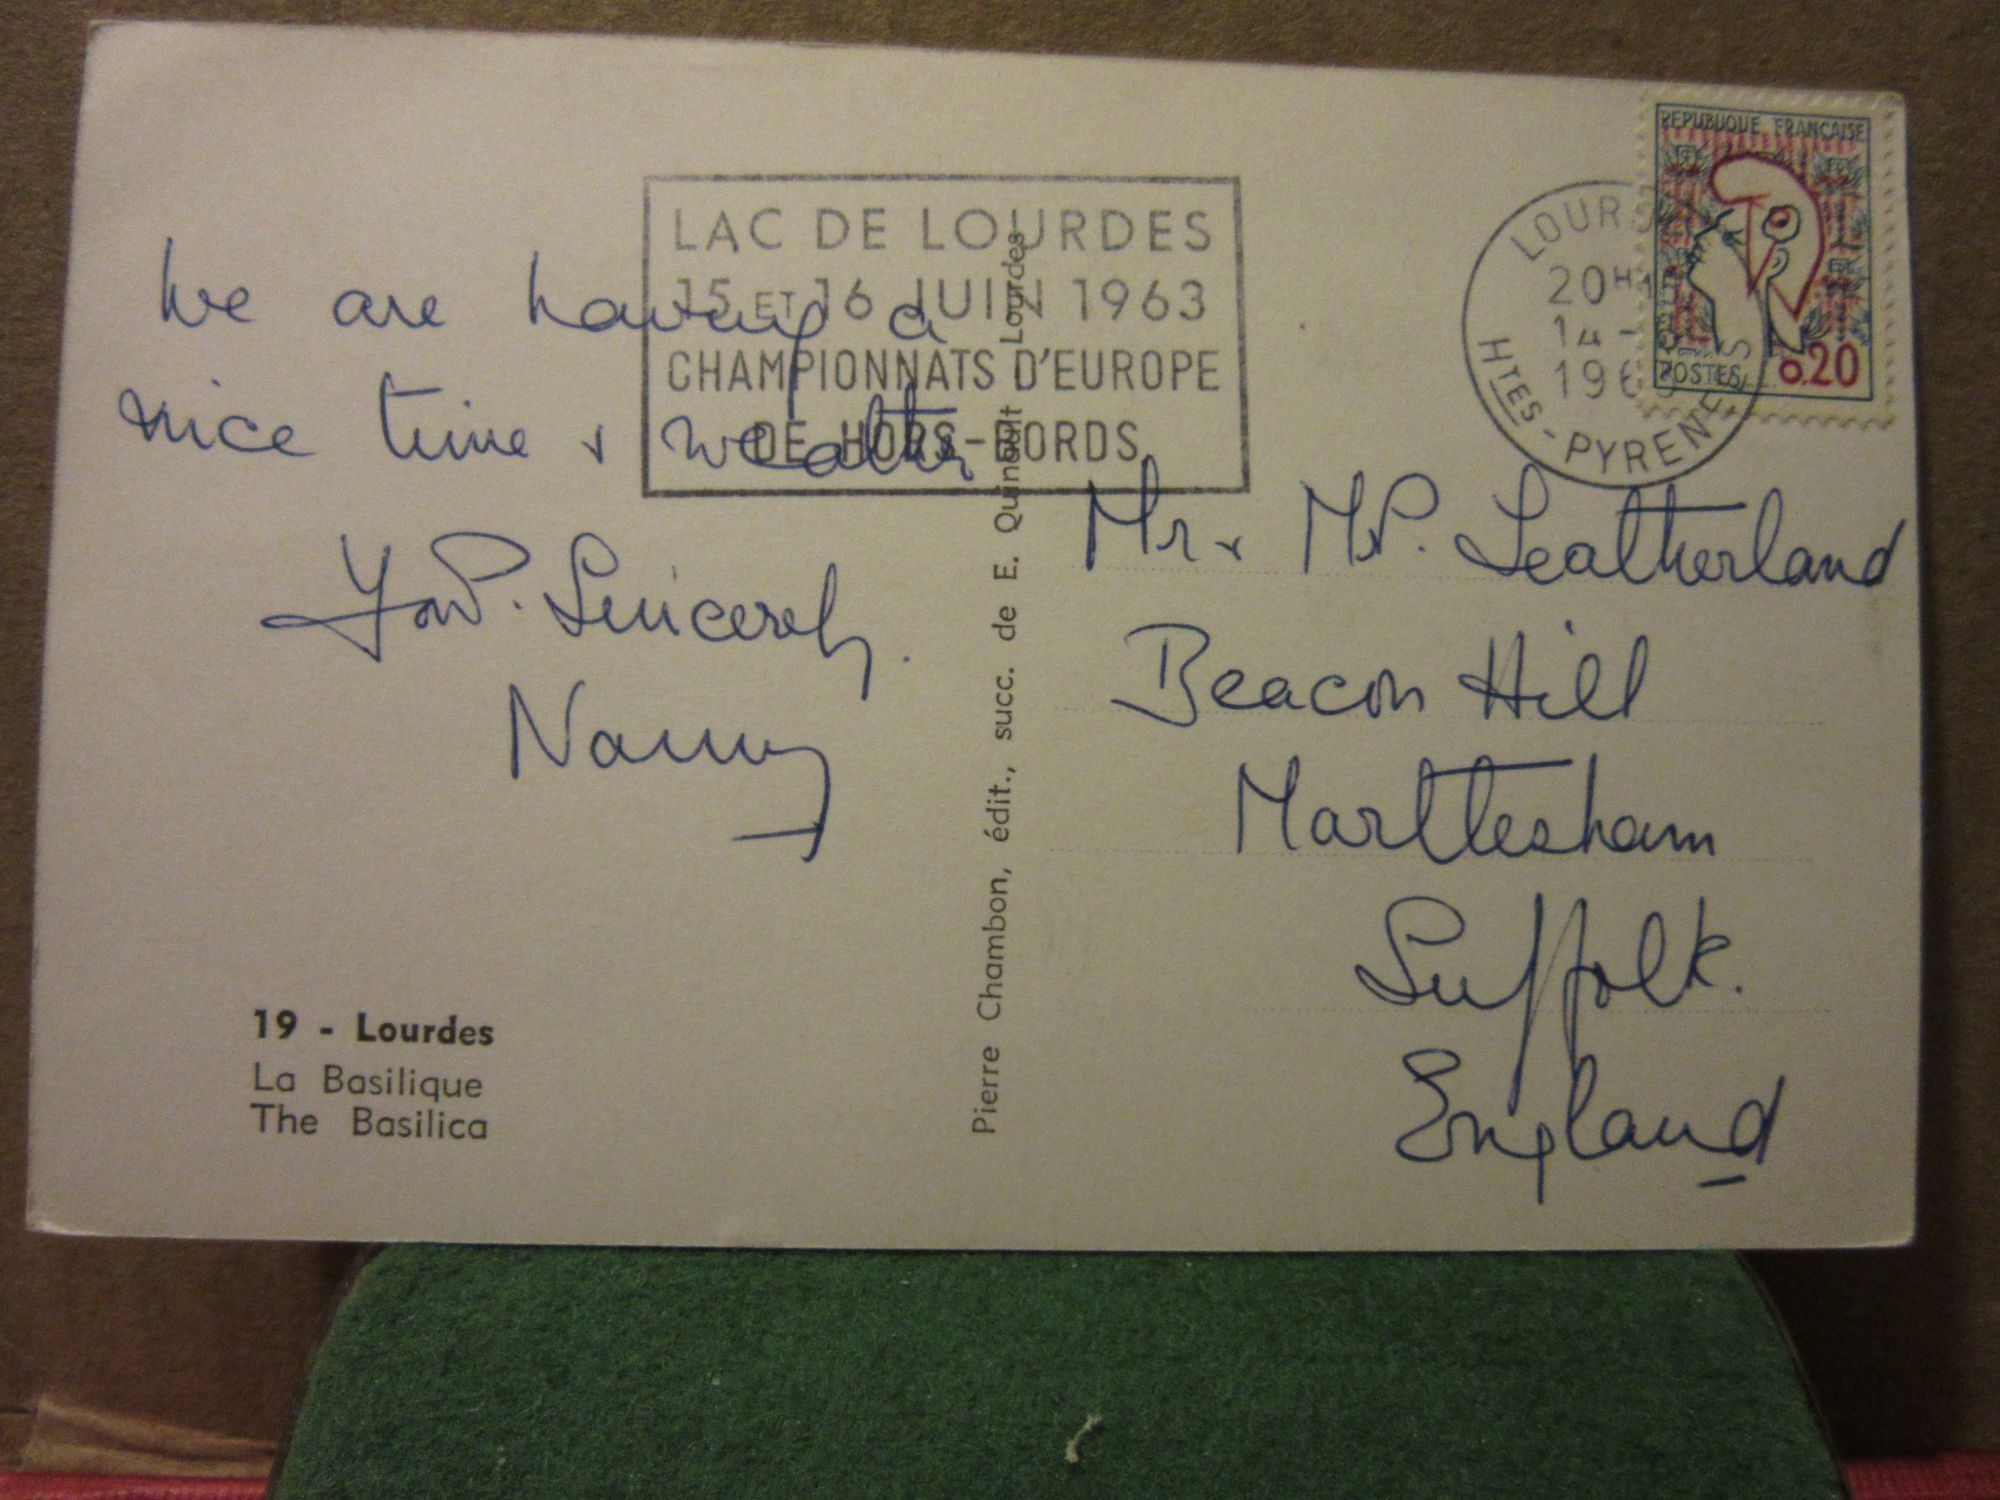 We are having a
nice time & weather
Yours. Sincerely.
Nanny
19 - Lourdes
La Basilique
The Basilica
LAC DE LOURDES
15 ET 16 JUIN 1963
CHAMPIONNATS D'EUROPE
DE HORS-BORDS
Pierre Chambon, édit., succ. de E. Quinault Lourdes
REPUBLIQUE FRANÇAISE
POSTES 0.20
LOURD
20H
14 -
196
HTES-PYRENEES
Mr & Mrs. Leatherland
Beacon Hill
Marttesham
Suffolk.
England